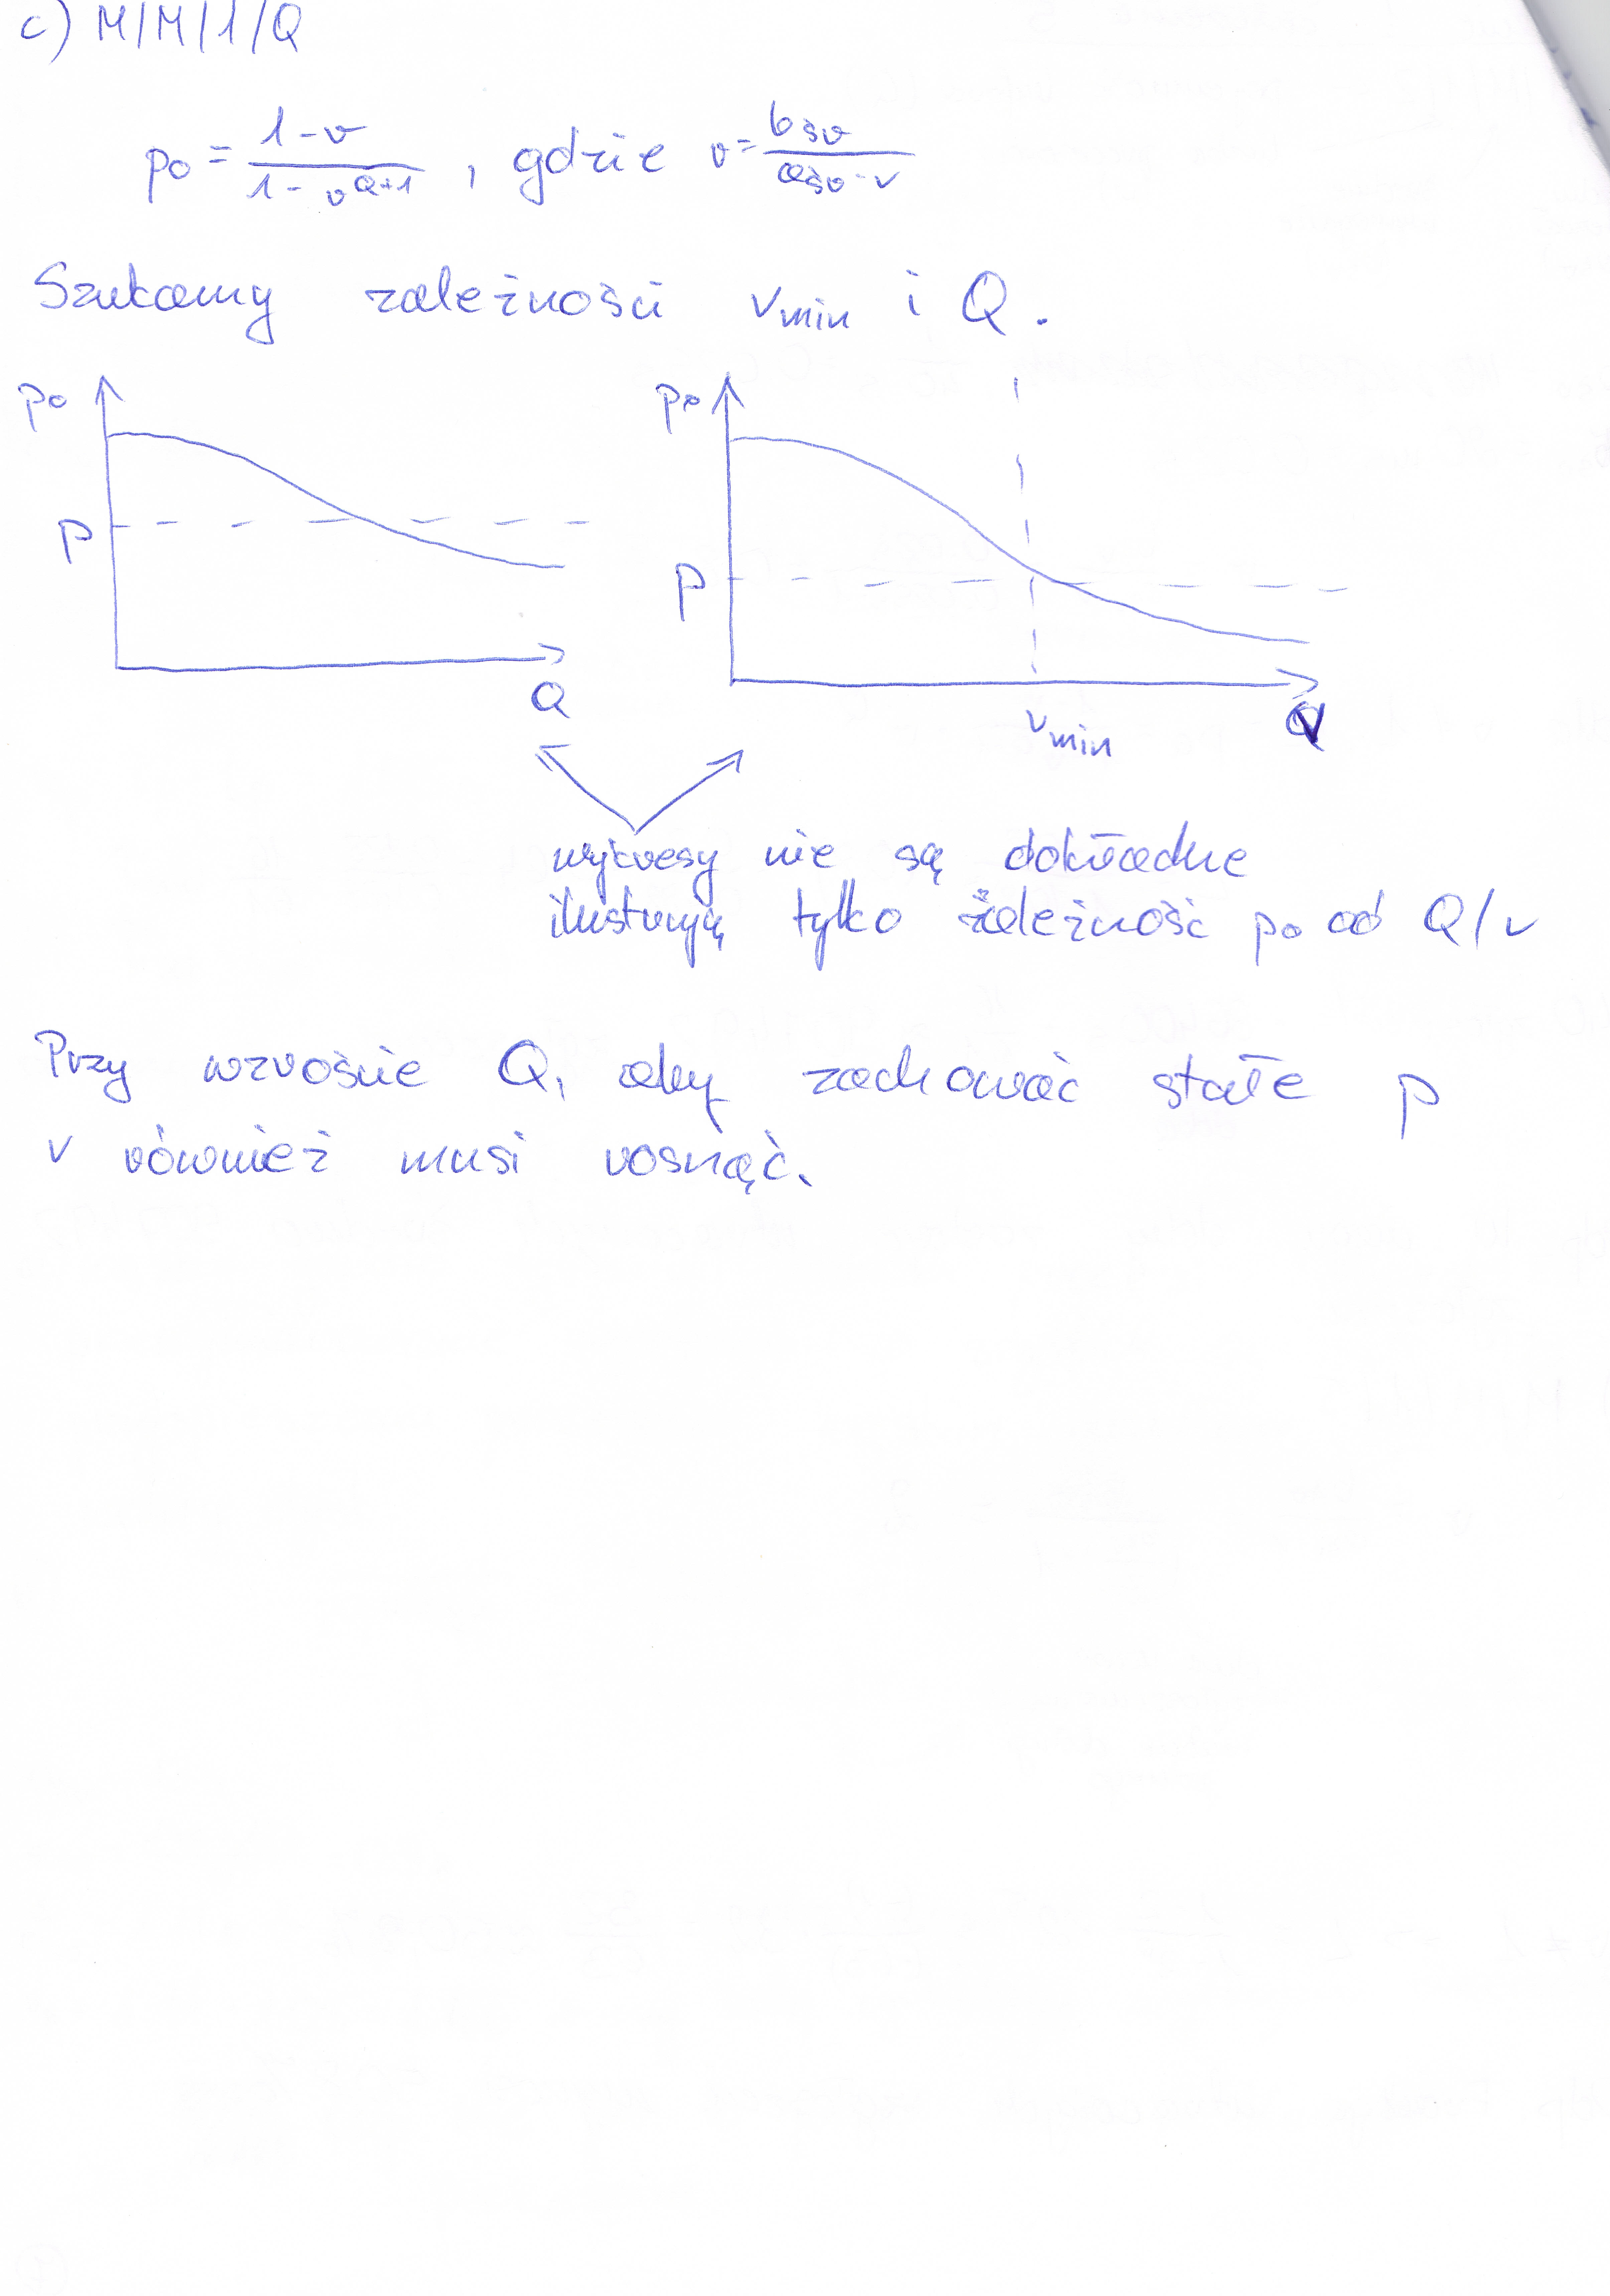 c) M/M/1/Q
p₀ = (1-r)/(1-r^(Q+1)) , gdzie r = b śr / a śr · v
Szukamy zależności v min i Q.
p₀
p
Q
p₀
p
v min
V
wykresy nie są dokładne
ilustrują tylko zależność p₀ od Q/v
Przy wzroście Q, aby zachować stałe p
v również musi rosnąć.